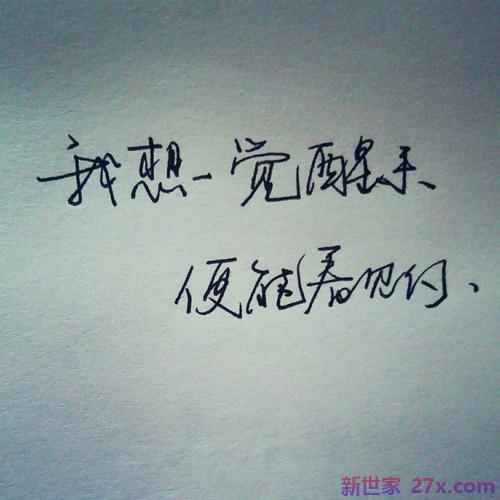 我想一觉醒来、
便能看见你、
新世家 27x.com